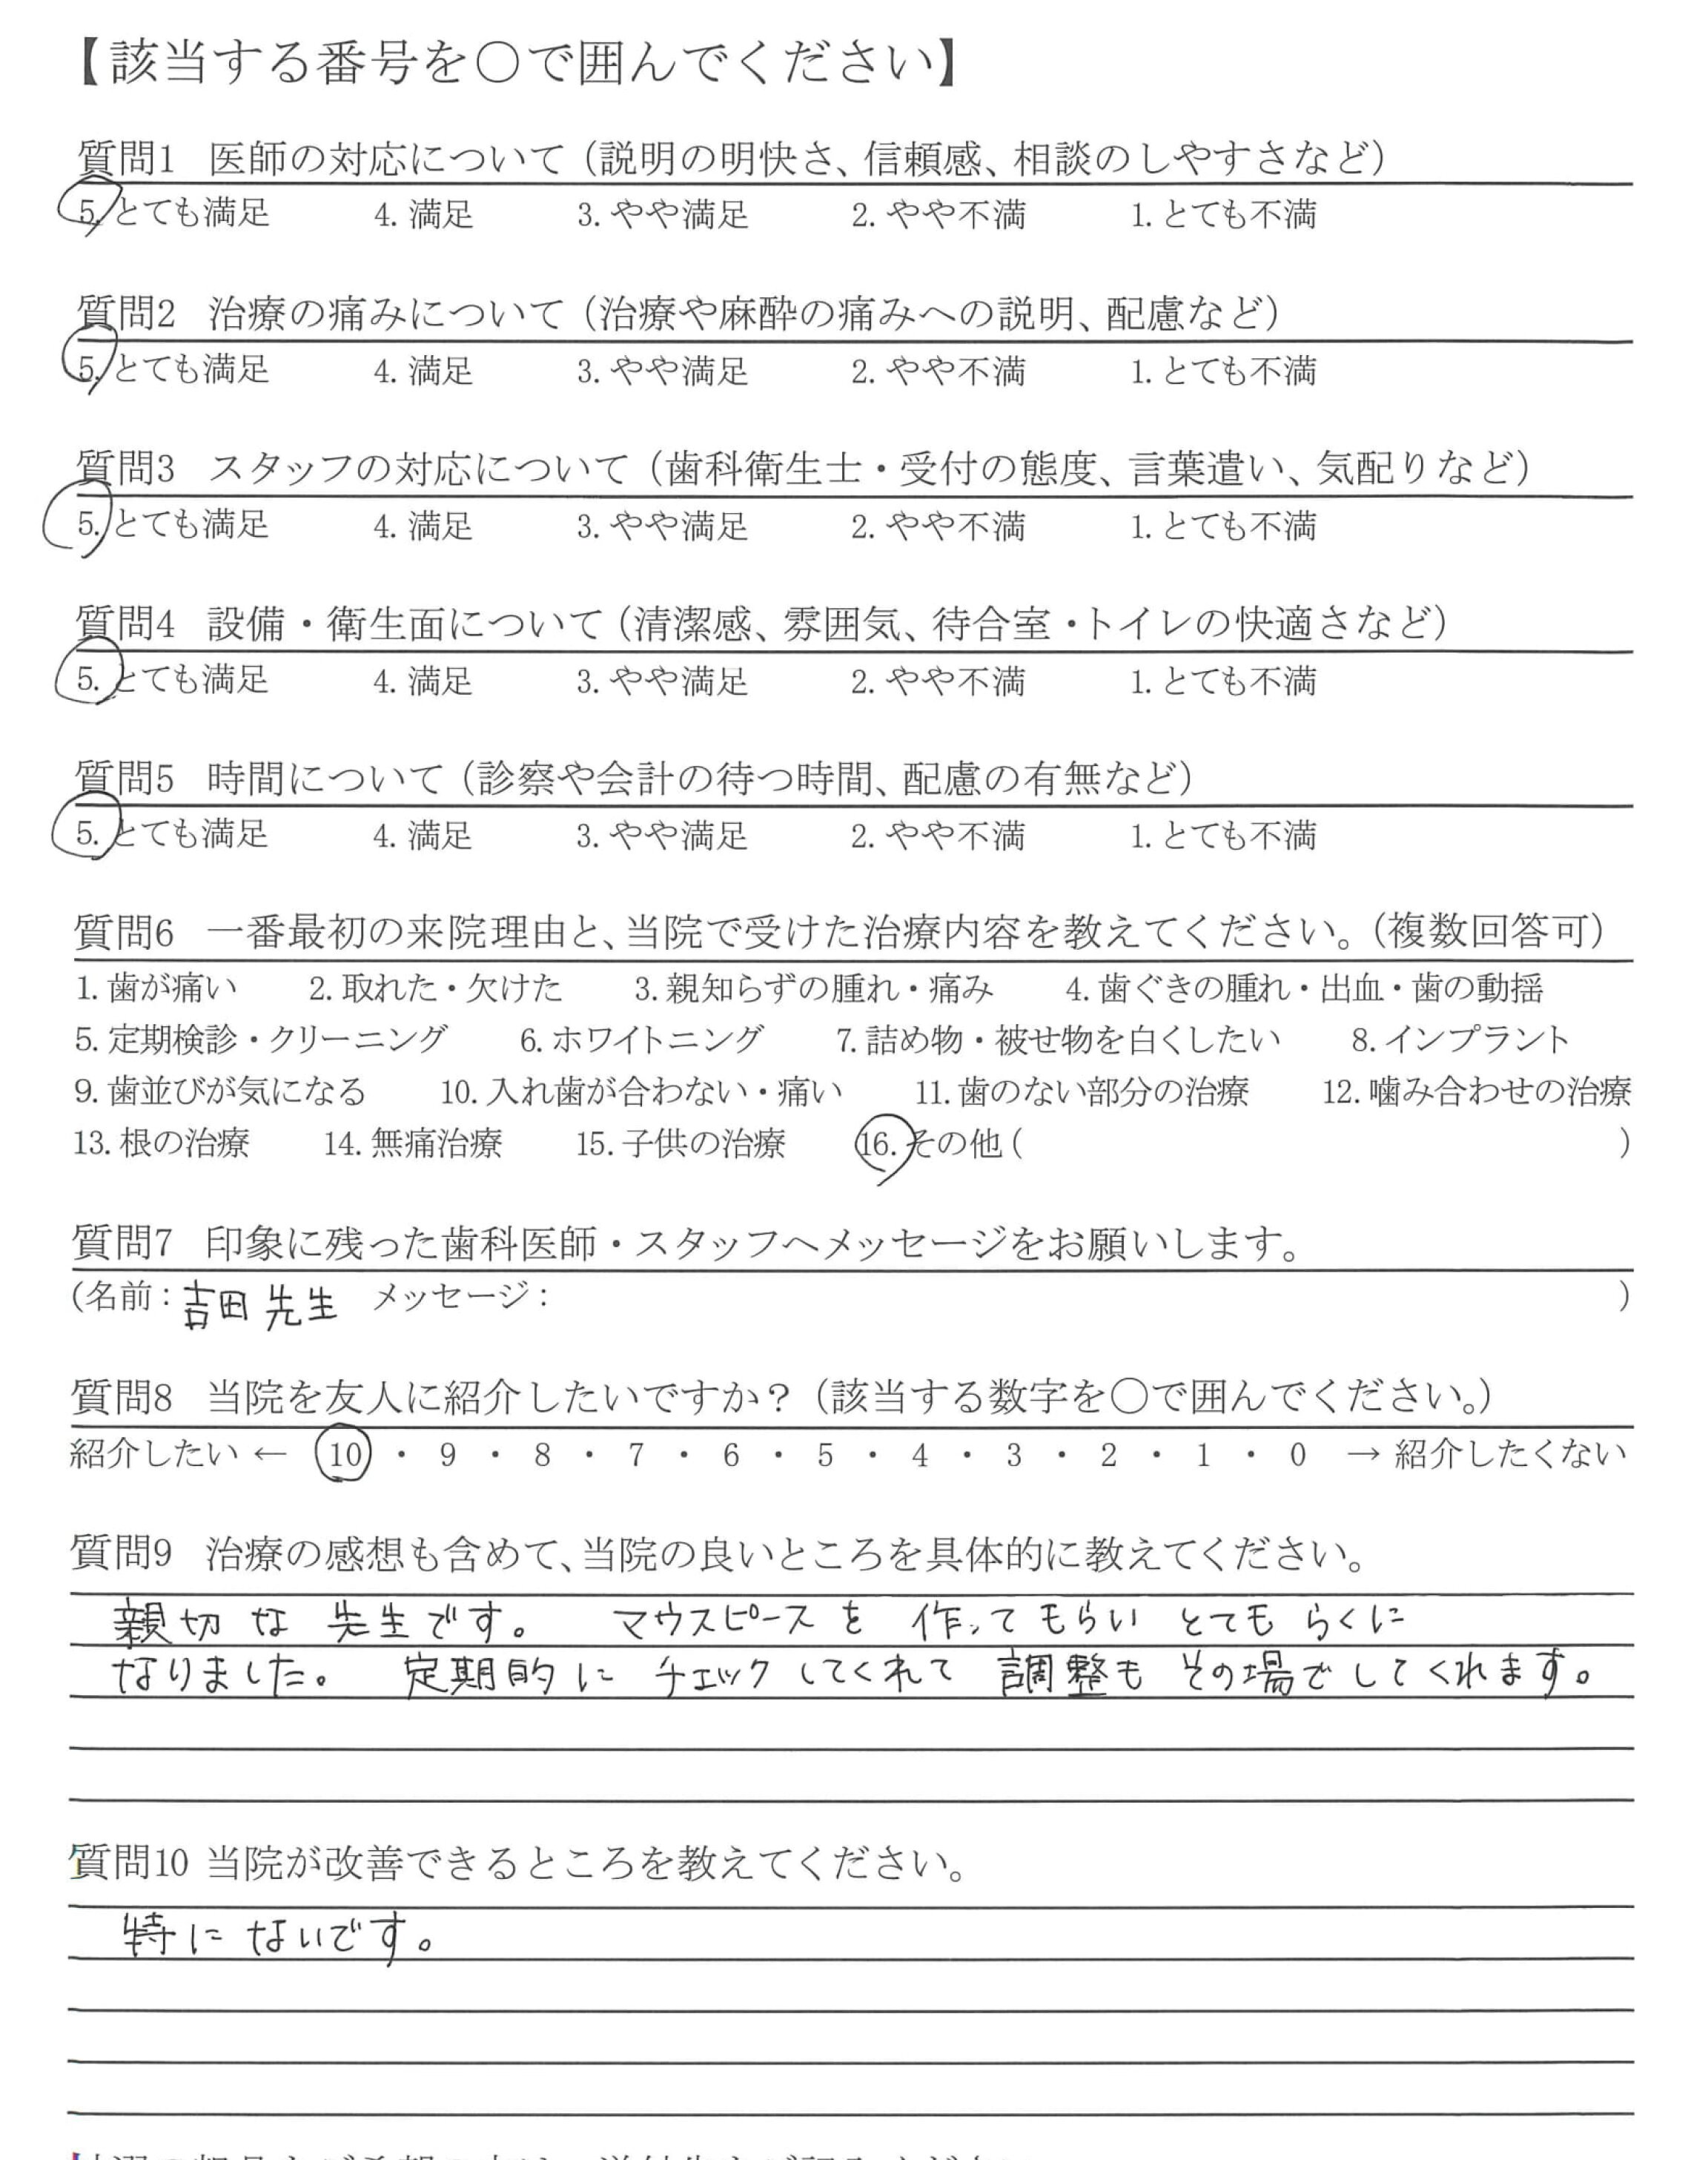 【該当する番号を〇で囲んでください】
質問1 医師の対応について（説明の明快さ、信頼感、相談のしやすさなど）
5. とても満足 4. 満足 3. やや満足 2. やや不満 1. とても不満
質問2 治療の痛みについて（治療や麻酔の痛みへの説明、配慮など）
5. とても満足 4. 満足 3. やや満足 2. やや不満 1. とても不満
質問3 スタッフの対応について（歯科衛生士・受付の態度、言葉遣い、気配りなど）
5. とても満足 4. 満足 3. やや満足 2. やや不満 1. とても不満
質問4 設備・衛生面について（清潔感、雰囲気、待合室・トイレの快適さなど）
5. とても満足 4. 満足 3. やや満足 2. やや不満 1. とても不満
質問5 時間について（診察や会計の待つ時間、配慮の有無など）
5. とても満足 4. 満足 3. やや満足 2. やや不満 1. とても不満
質問6 一番最初の来院理由と、当院で受けた治療内容を教えてください。（複数回答可）
1. 歯が痛い 2. 取れた・欠けた 3. 親知らずの腫れ・痛み 4. 歯ぐきの腫れ・出血・歯の動揺
5. 定期検診・クリーニング 6. ホワイトニング 7. 詰め物・被せ物を白くしたい 8. インプラント
9. 歯並びが気になる 10. 入れ歯が合わない・痛い 11. 歯のない部分の治療 12. 噛み合わせの治療
13. 根の治療 14. 無痛治療 15. 子供の治療 16. その他（ ）
質問7 印象に残った歯科医師・スタッフへメッセージをお願いします。
（名前：吉田 先生 メッセージ： ）
質問8 当院を友人に紹介したいですか？（該当する数字を〇で囲んでください。）
紹介したい ← 10 ・ 9 ・ 8 ・ 7 ・ 6 ・ 5 ・ 4 ・ 3 ・ 2 ・ 1 ・ 0 → 紹介したくない
質問9 治療の感想も含めて、当院の良いところを具体的に教えてください。
親切な先生です。 マウスピースを 作って もらい とても らくに
なりました。 定期的に チェック してくれて 調整も その場でしてくれます。
質問10 当院が改善できるところを教えてください。
特に ないです。